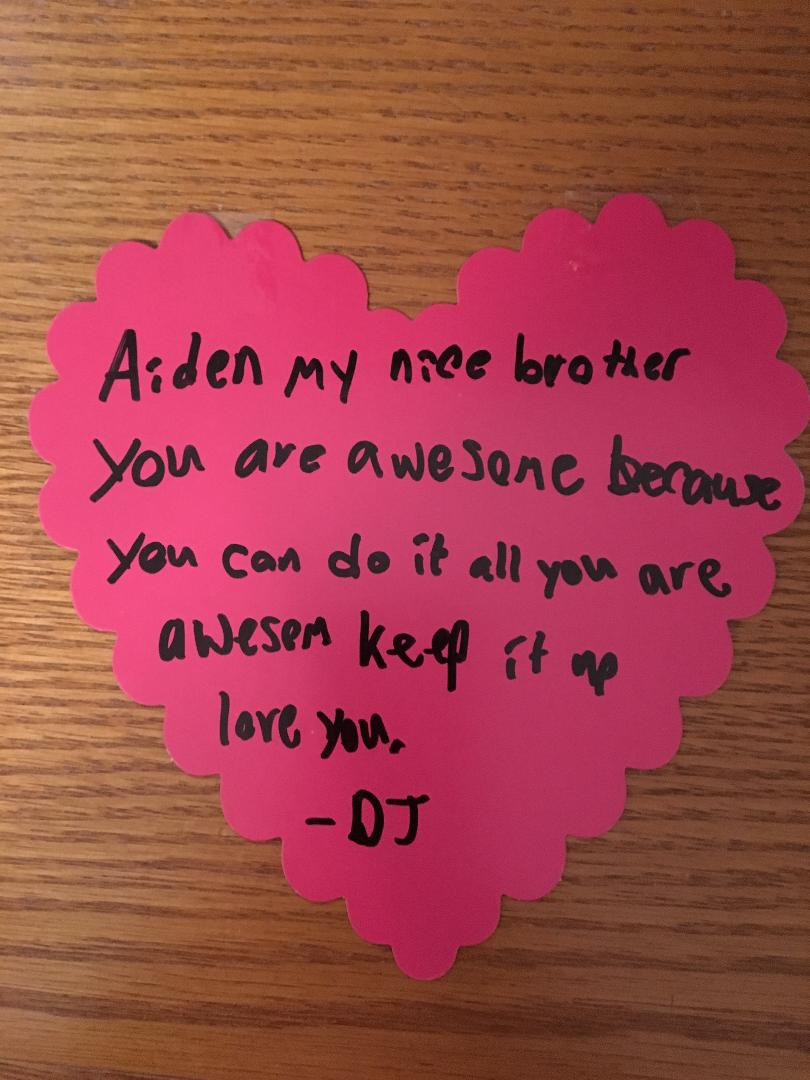 Aiden my nice brother
You are awesome because
you can do it all you are
awesem keep it up
love you.
-DJ